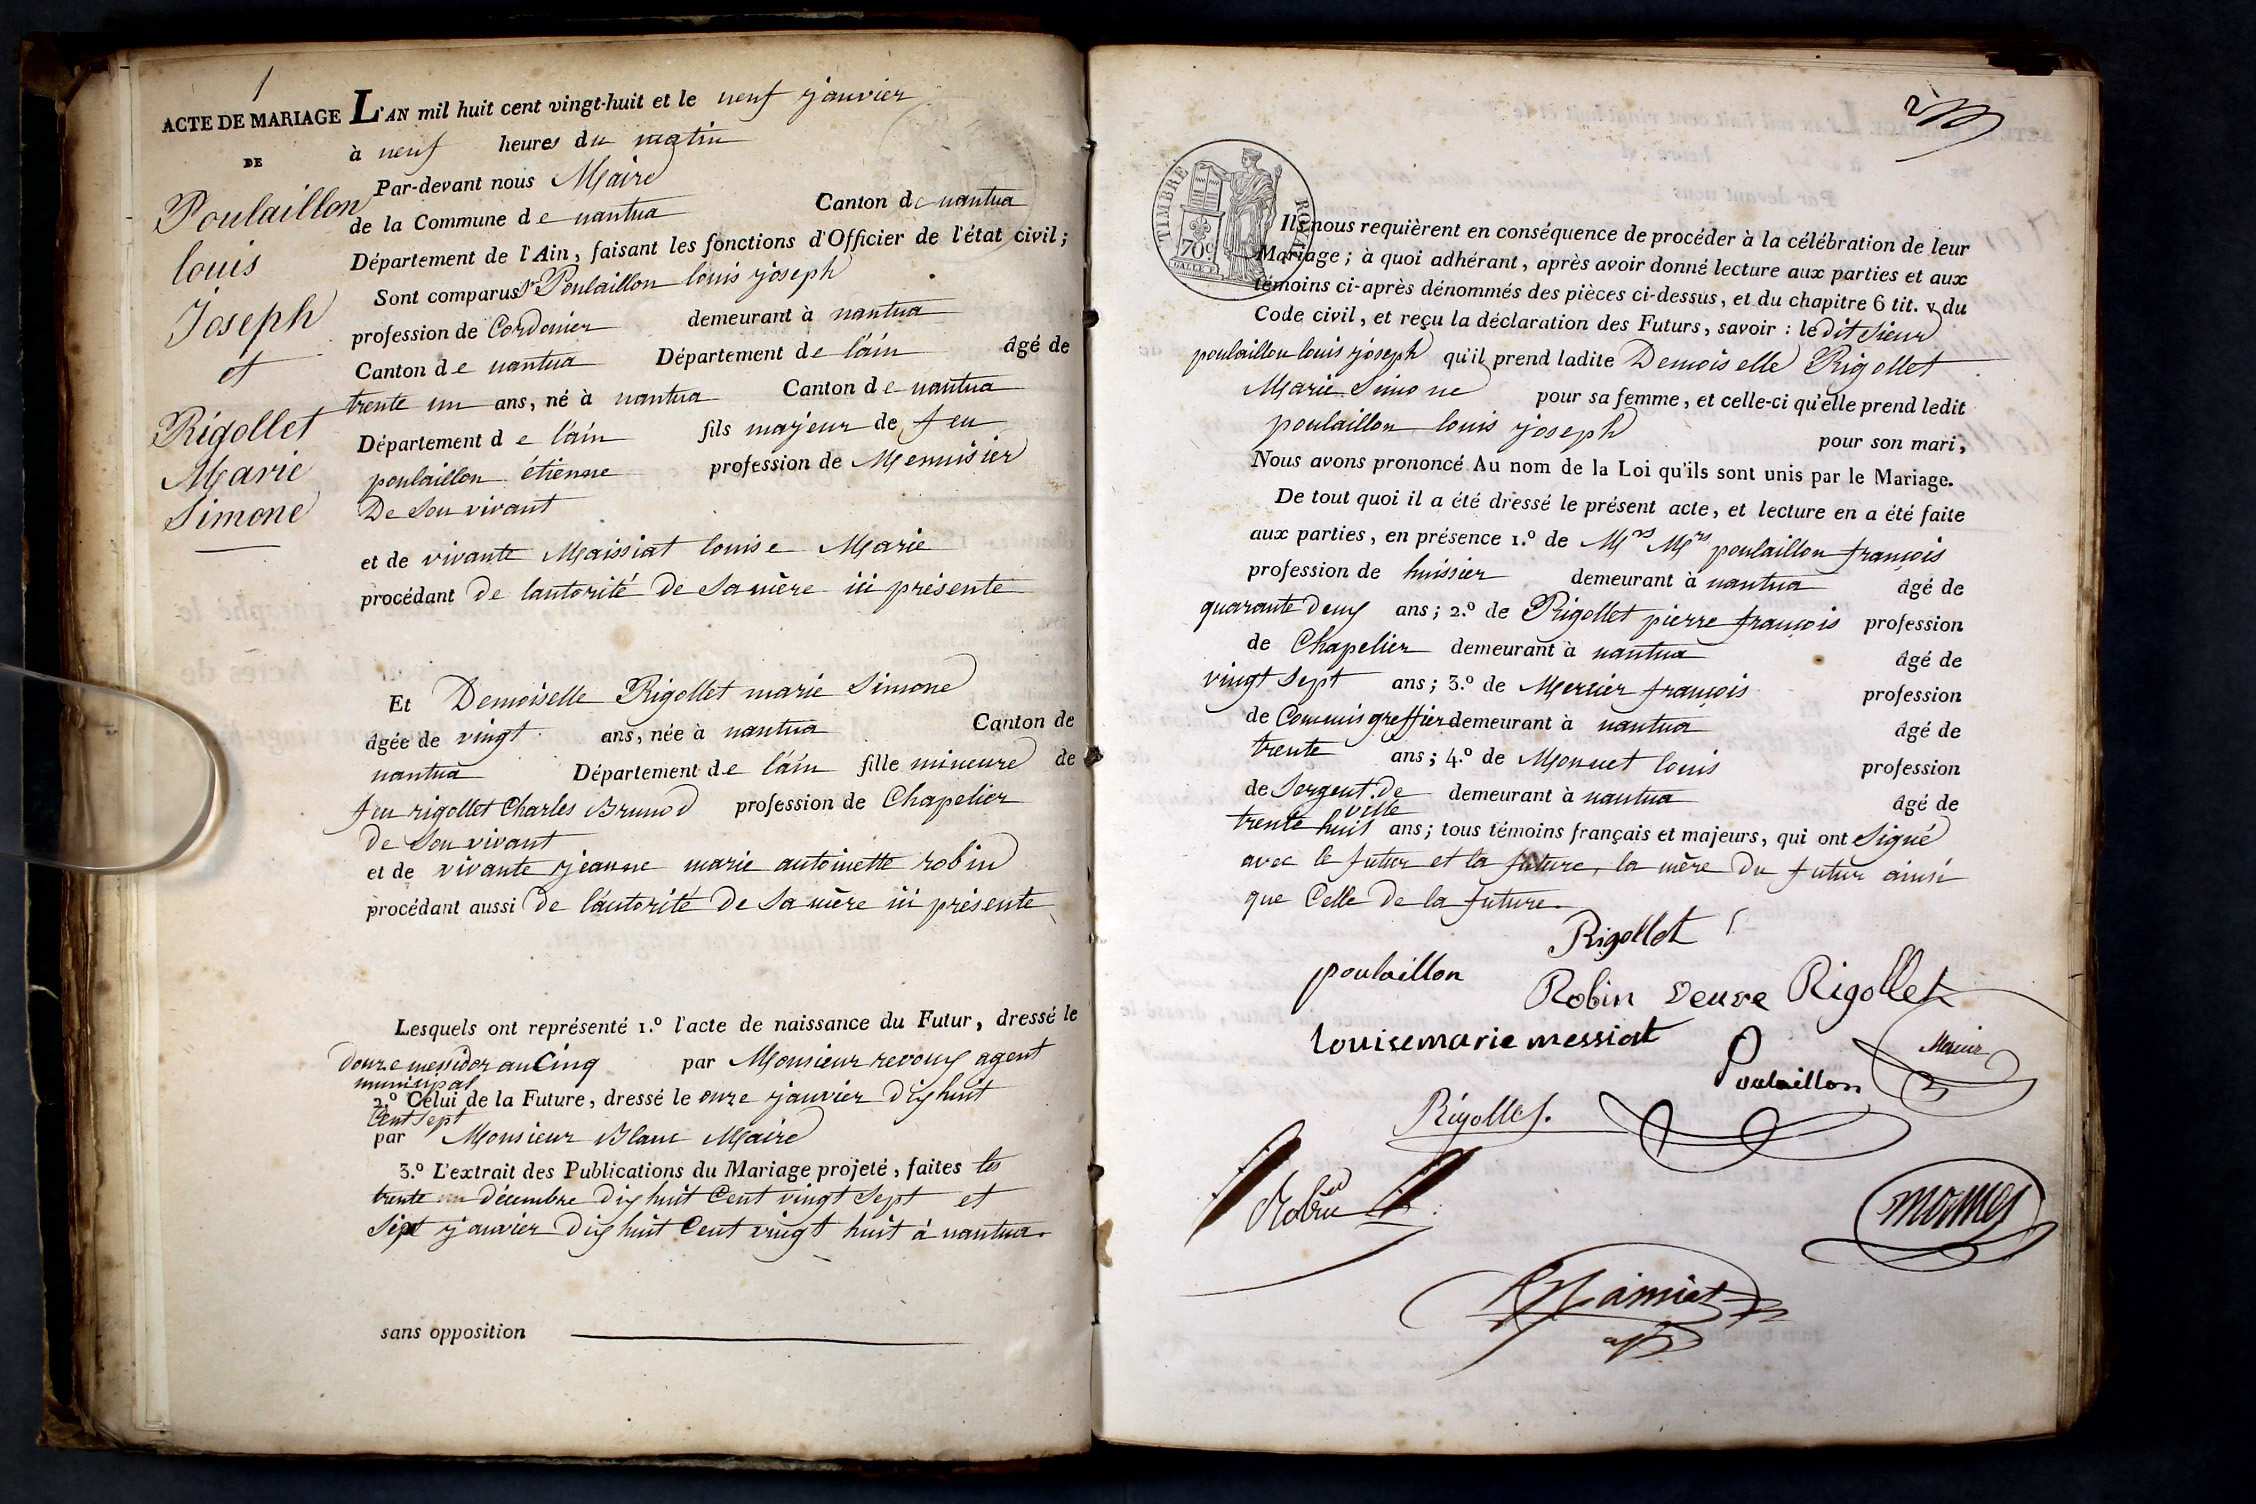 1
ACTE DE MARIAGE
DE
Poulaillon
louis
Joseph
et
Rigollet
Marie
Simone
L'AN mil huit cent vingt-huit et le neuf janvier
à neuf heures du matin
Par-devant nous Maire
de la Commune de nantua Canton de nantua
Département de l'Ain, faisant les fonctions d'Officier de l'état civil;
Sont comparus Sr Poulaillon louis joseph
profession de Cordonier demeurant à nantua
Canton de nantua Département de l'ain âgé de
trente un ans, né à nantua Canton de nantua
Département de l'ain fils majeur de feu
poulaillon étienne profession de Menuisier
De Son vivant
et de vivante Maissiat louise Marie
procédant de lautorité de Sa mère ici présente
Et Demoiselle Rigollet marie Simone
âgée de vingt ans, née à nantua Canton de
nantua Département de l'ain fille mineure de
feu rigollet Charles Bruno profession de Chapelier
de Son vivant
et de vivante jeanne marie antoinette robin
procédant aussi De l'autorité De Sa mère ici présente
Lesquels ont représenté 1.º l'acte de naissance du Futur, dressé le
Douze messidor an Cinq par Monsieur revoux agent
municipal
2.º Celui de la Future, dressé le onze janvier Dix huit
Cent Sept
par Monsieur Blanc Maire
3.º L'extrait des Publications du Mariage projeté, faites les
trente un décembre Dix huit Cent vingt Sept et
Sept janvier Dix huit Cent vingt huit à nantua.
sans opposition
2
TIMBRE ROYAL
70c
Ils nous requièrent en conséquence de procéder à la célébration de leur
Mariage; à quoi adhérant, après avoir donné lecture aux parties et aux
témoins ci-après dénommés des pièces ci-dessus, et du chapitre 6 tit. v du
Code civil, et reçu la déclaration des Futurs, savoir : ledit Sieur
poulaillon louis joseph qu'il prend ladite Demoiselle Rigollet
Marie Simone pour sa femme, et celle-ci qu'elle prend ledit
poulaillon louis joseph pour son mari,
Nous avons prononcé Au nom de la Loi qu'ils sont unis par le Mariage.
De tout quoi il a été dressé le présent acte, et lecture en a été faite
aux parties, en présence 1.º de Mrs Mrs poulaillon françois
profession de huissier demeurant à nantua âgé de
quarante Deux ans; 2.º de Rigollet pierre françois profession
de Chapelier demeurant à nantua âgé de
vingt Sept ans; 3.º de Mercier françois profession
de Commis greffier demeurant à nantua âgé de
trente ans; 4.º de Monnet louis profession
de Sergent de demeurant à nantua âgé de
ville
trente huit ans; tous témoins français et majeurs, qui ont Signé
avec le futur et la future, la mère Du futur ainsi
que Celle De la future.
Rigollet
poulaillon
Robin veuve Rigollet
louise marie messiat
Mercier
Poulaillon
Rigollet.
Robin